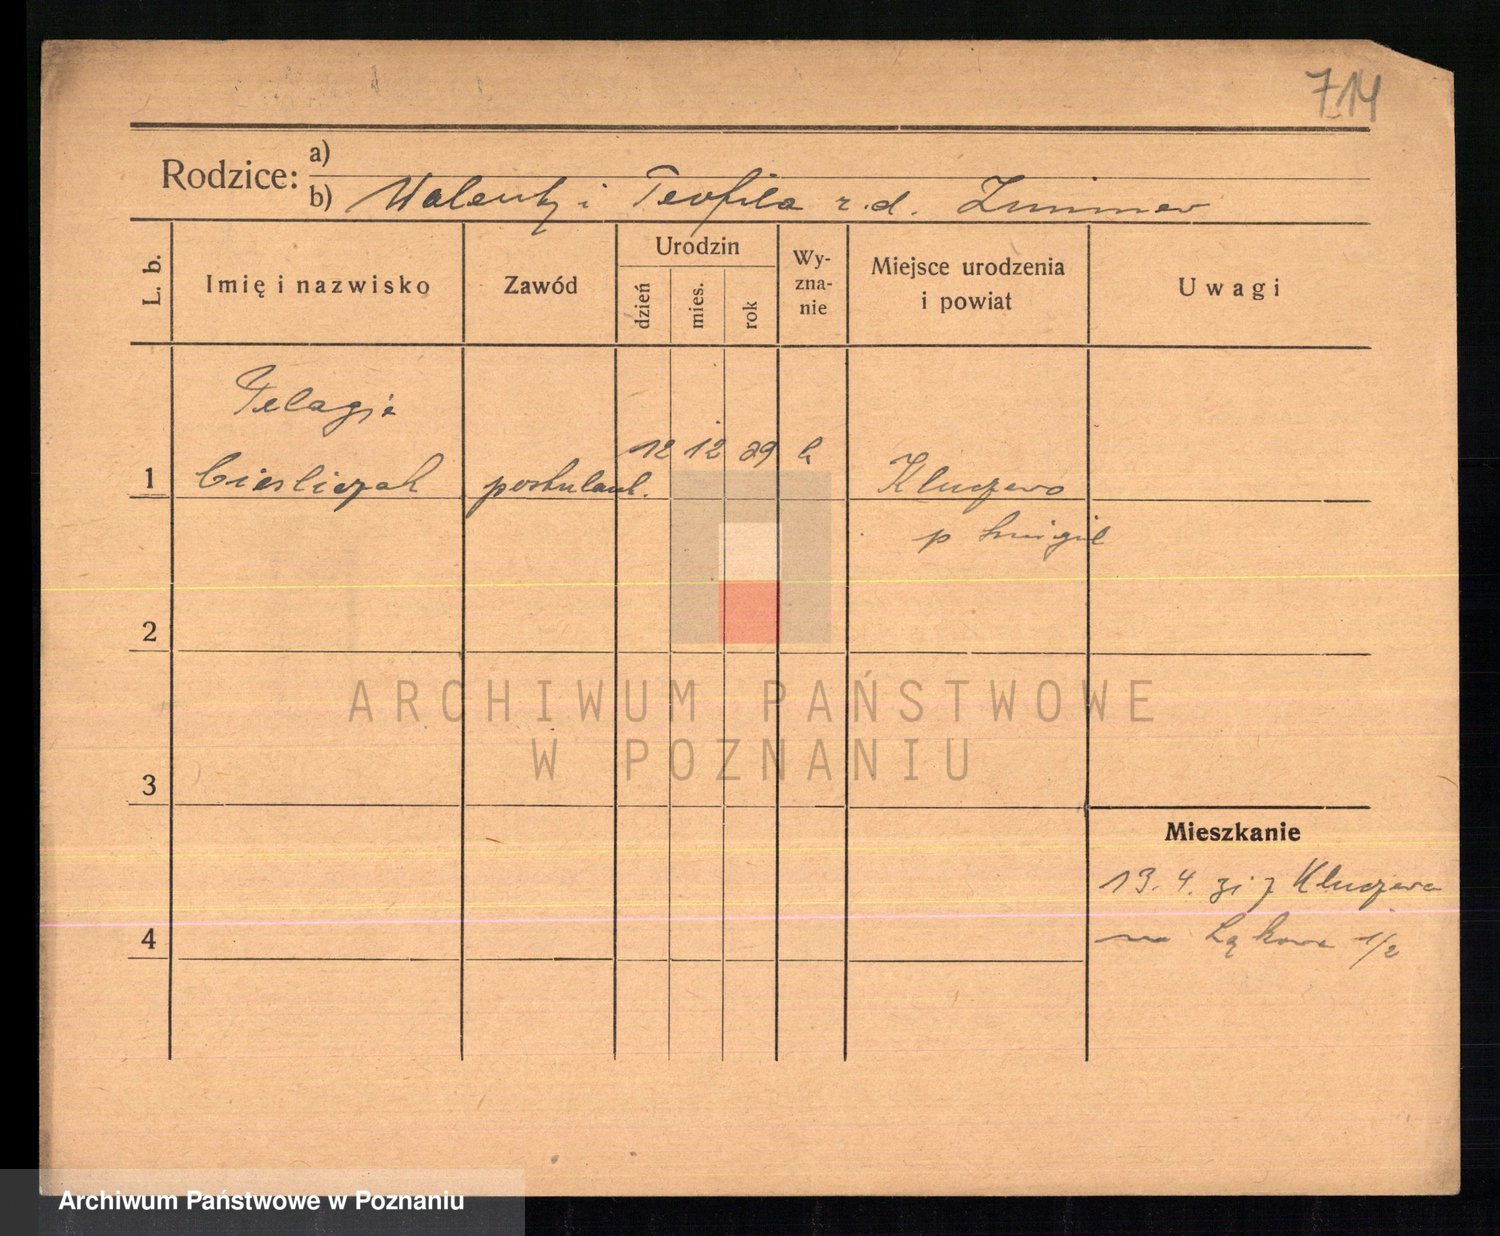 714
Rodzice: a)
b) Walenty i Teofila r.d. Zimmer
L. b. Imię i nazwisko Zawód Urodzin dzień mies. rok Wyznanie Miejsce urodzenia i powiat Uwagi
Pelagja
1 Cieśliczak postulant. 12 12 29 k Kluczewo
p Śmigiel
2
ARCHIWUM PAŃSTWOWE
W POZNANIU
3
Mieszkanie
13. 4. z Kluczewa
4 na Łąkowa 1/2
Archiwum Państwowe w Poznaniu